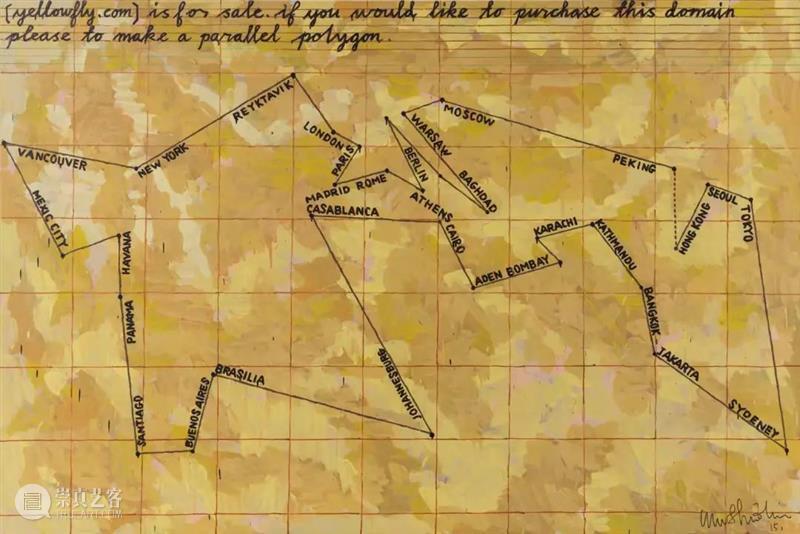 [yellowfly.com] is for sale. if you would like to purchase this domain
please to make a parallel polygon.
REYKTAVIK
MOSCOW
LONDON
WARSAW
VANCOUVER
NEW YORK
PARIS
BERLIN
PEKING
MADRID ROME
BAGHDAD
SEOUL
TOKYO
MEXIC CITY
CASABLANCA
ATHENS
CAIRO
KARACHI
KATHMANDU
HONG KONG
HAVANA
ADEN BOMBAY
PANAMA
BANGKOK
JAKARTA
JOHANNESBURG
BRASILIA
BUENOS AIRES
SANTIAGO
SYDENEY
15.
崇真艺客